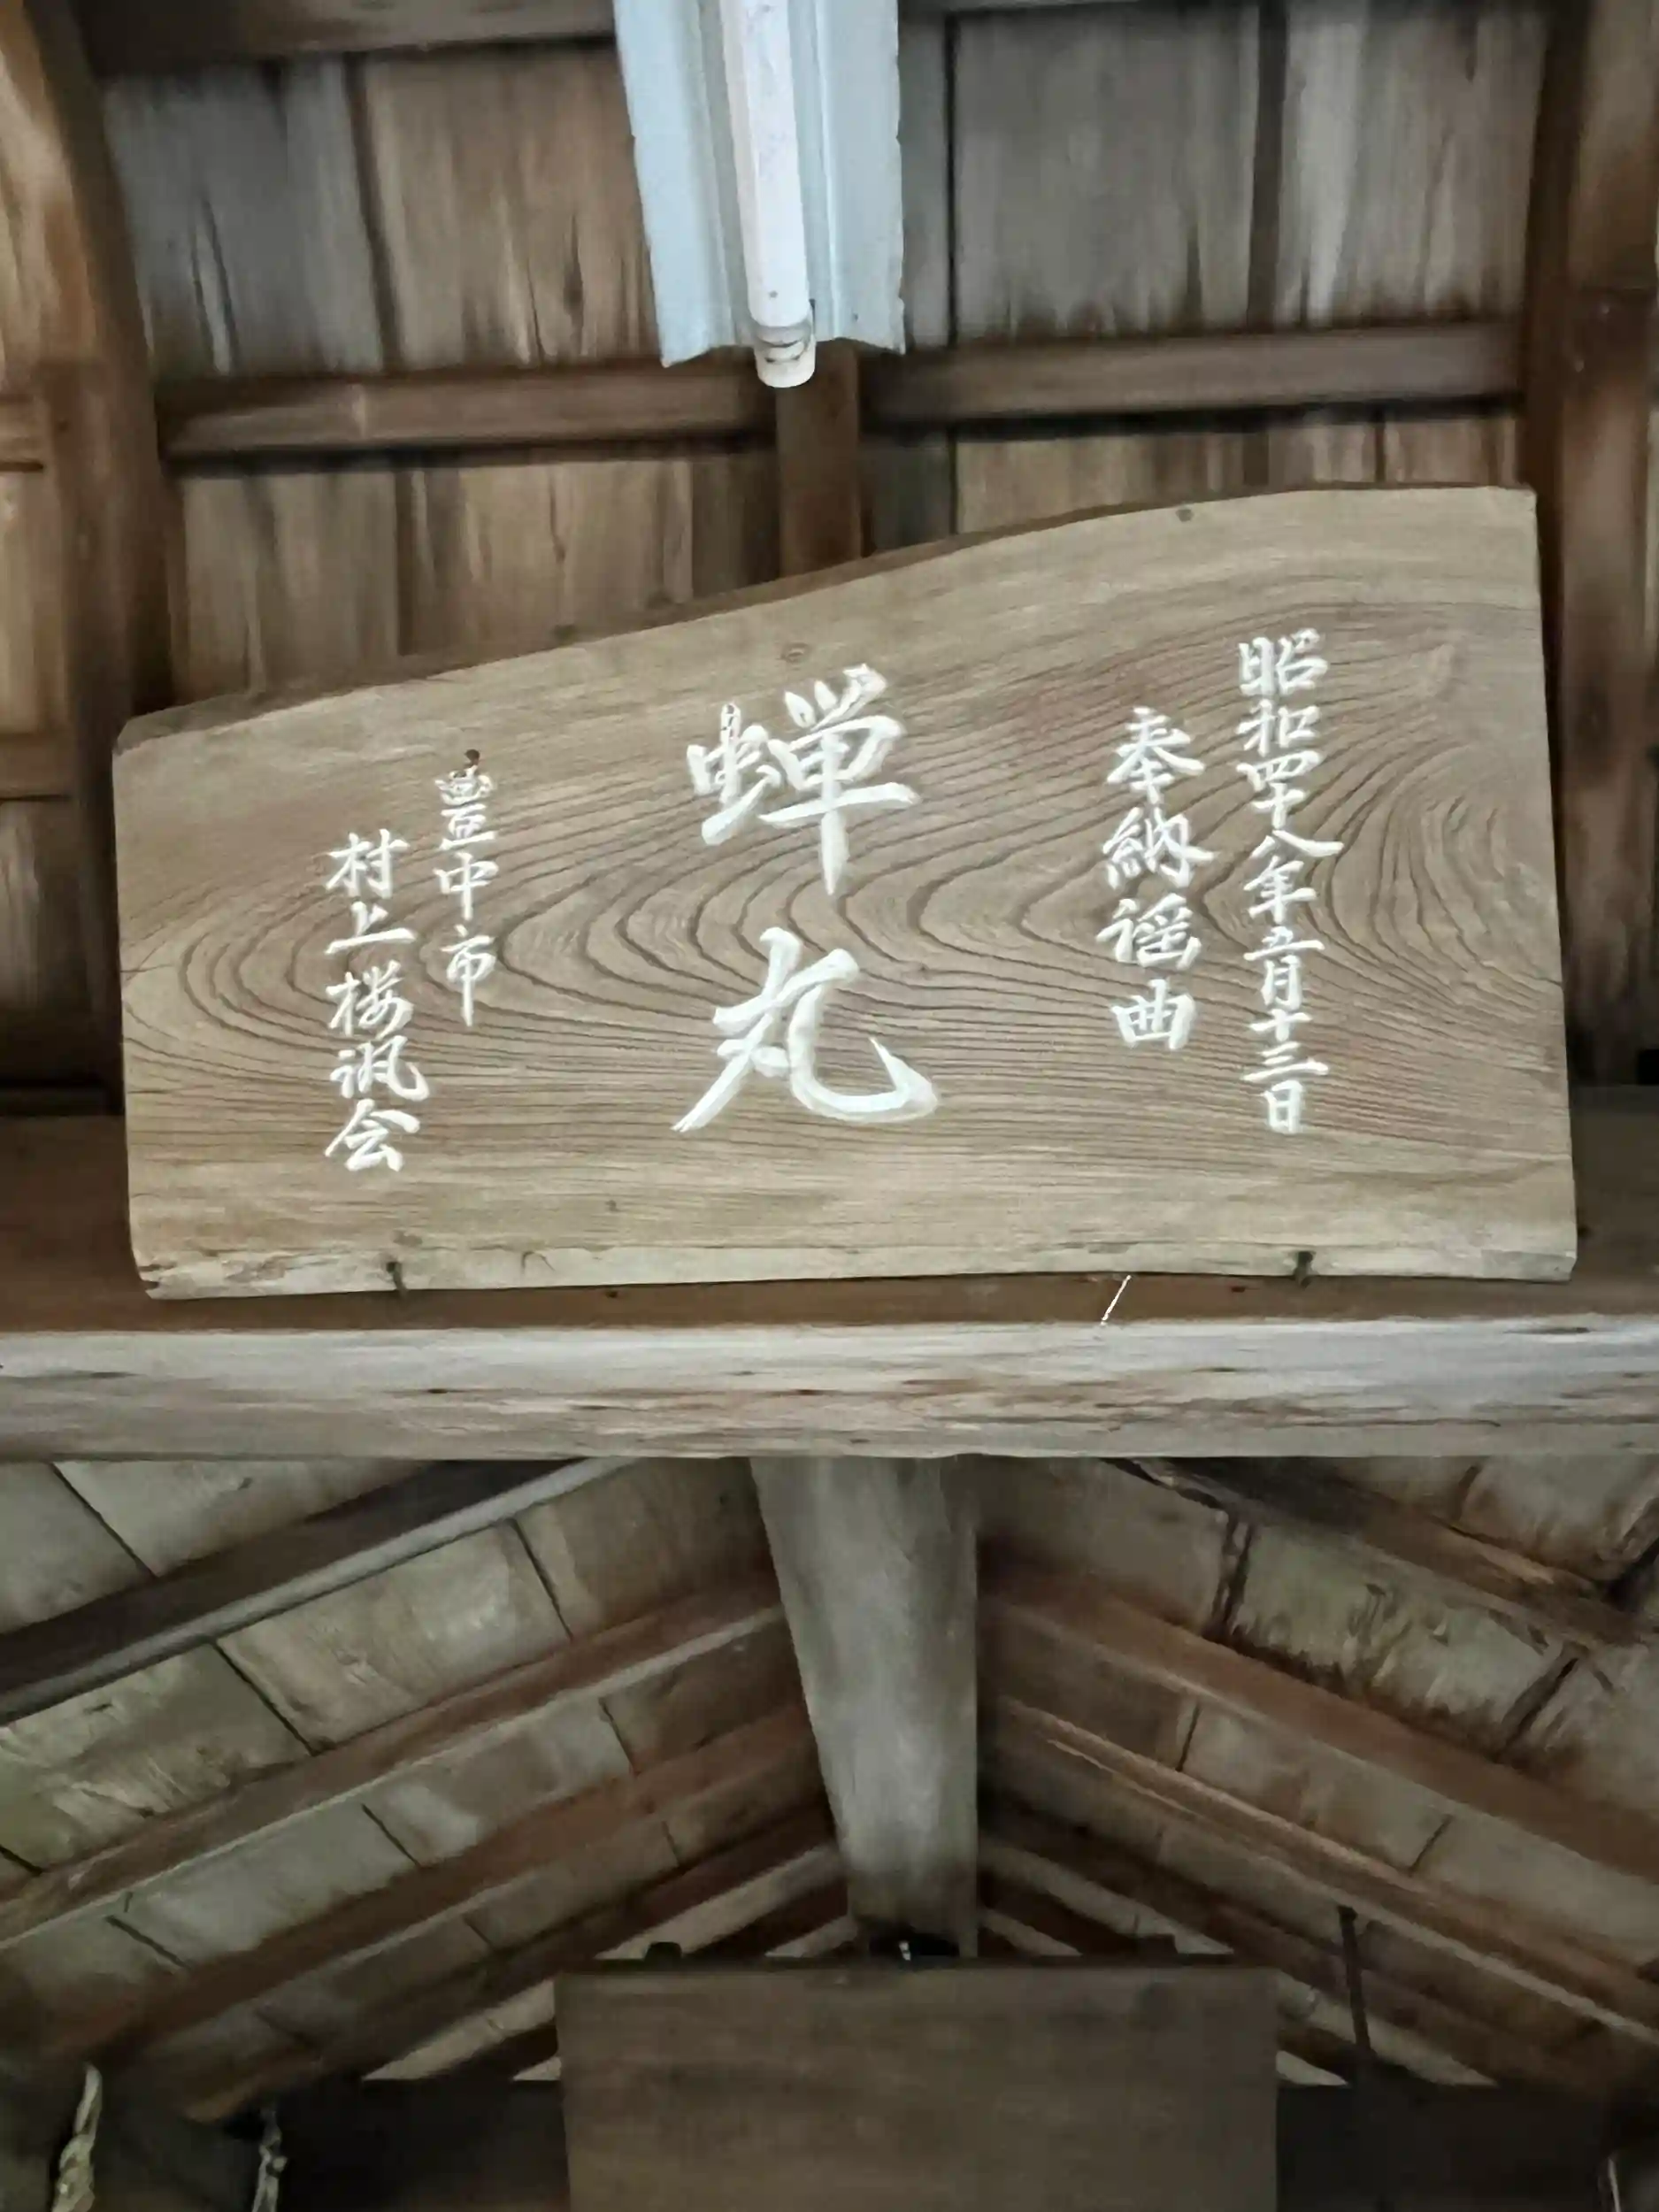 昭和四十八年五月十三日
奉納謡曲
蝉丸
豊中市
村上桜諷会